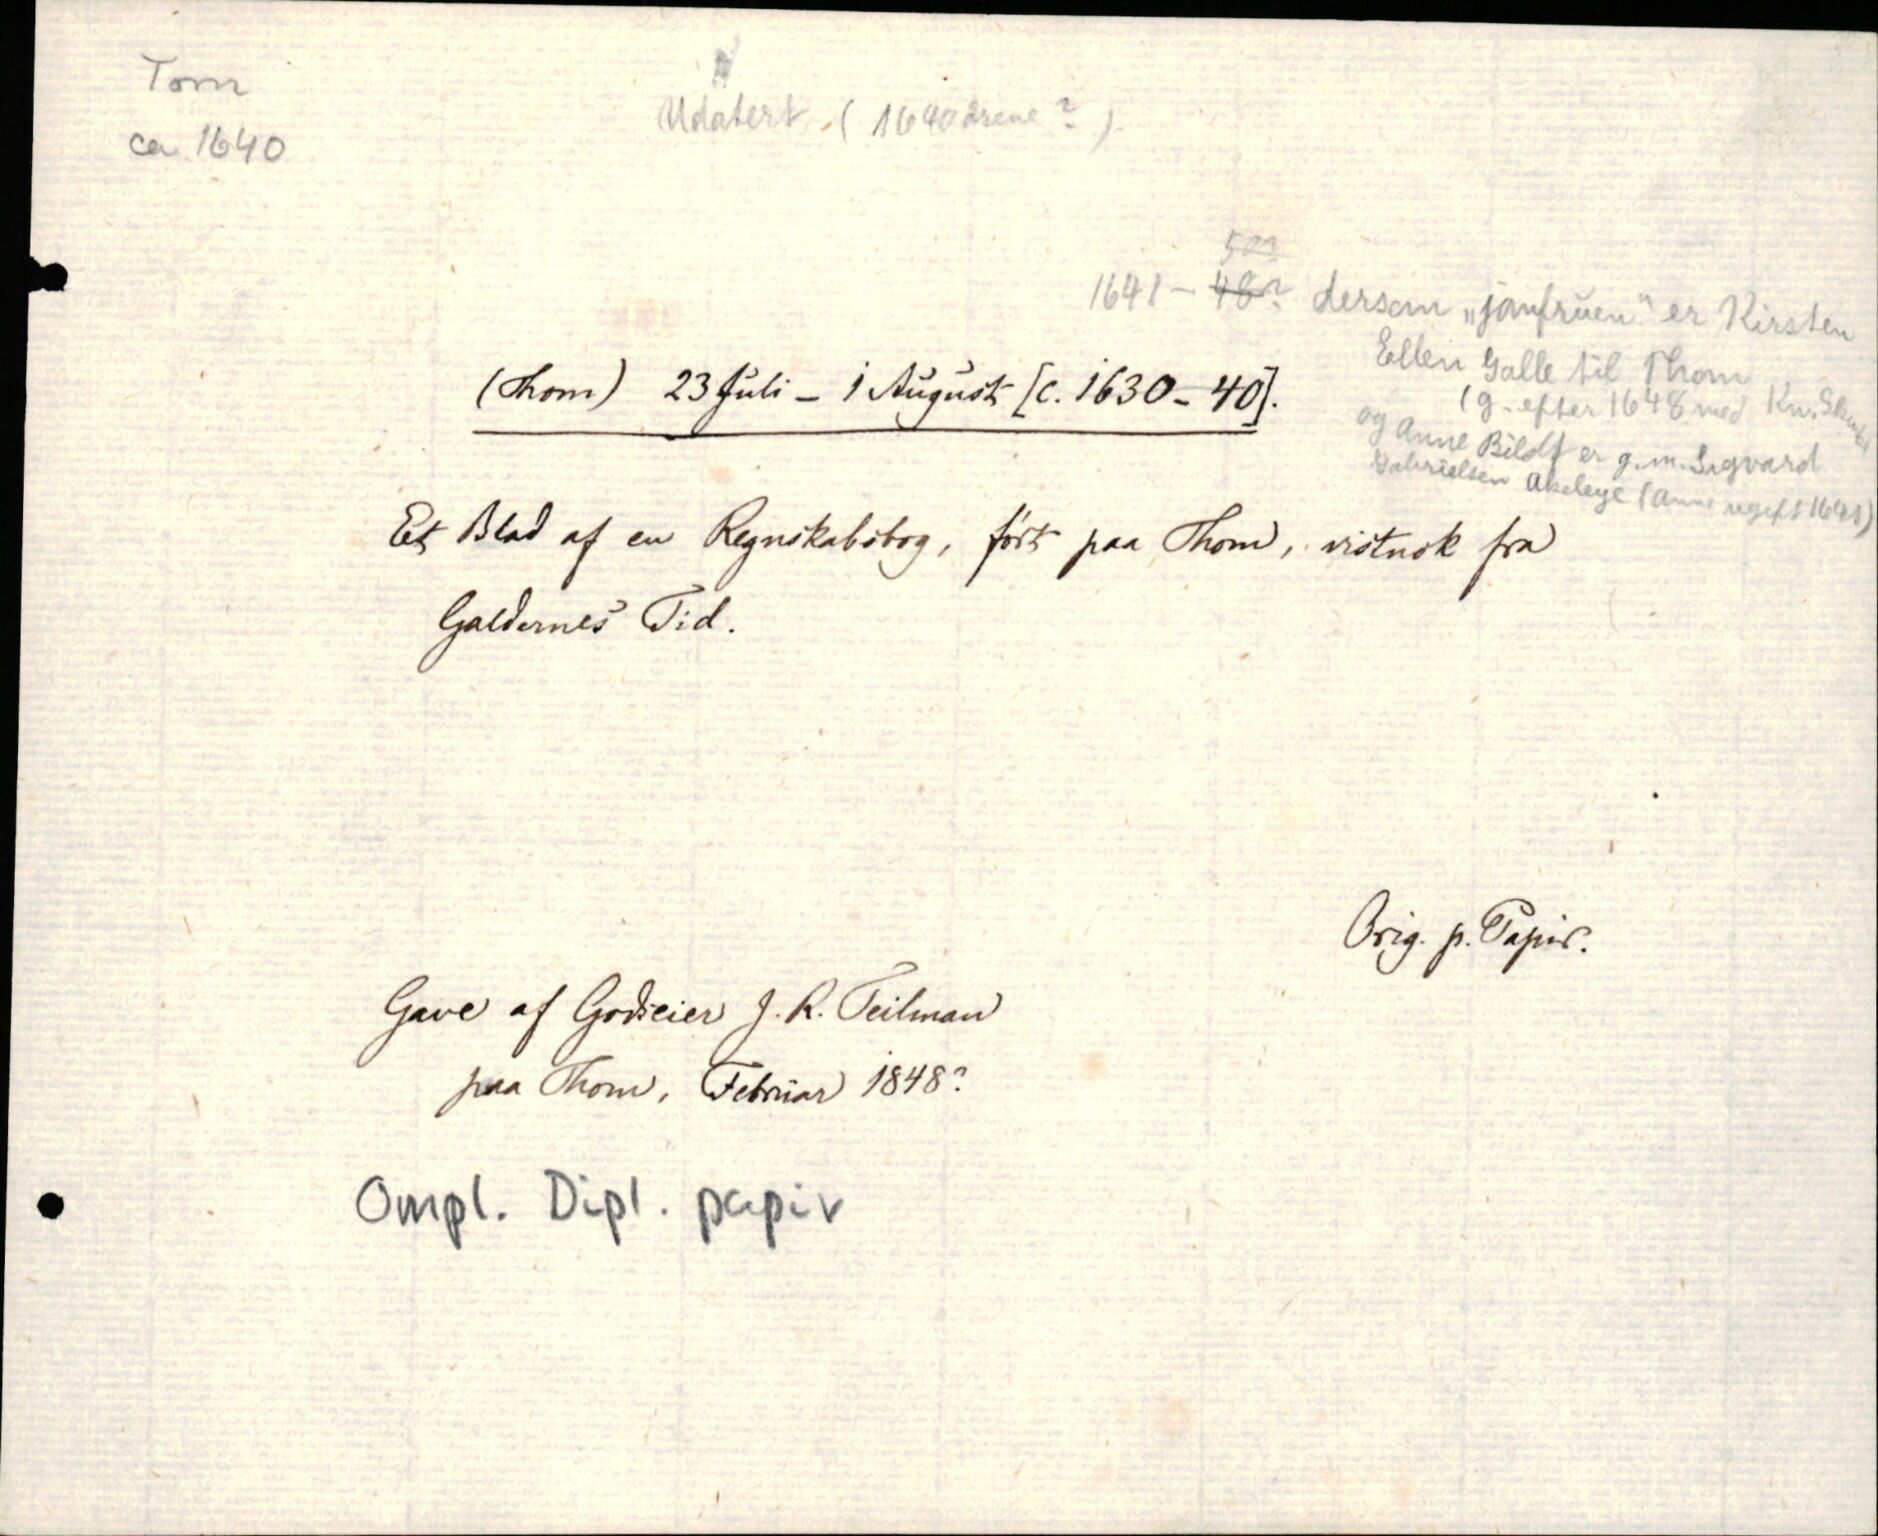 Torn
ca 1640
Udatert (1640årene?).
50?
1641 – 48? dersom „jomfruen" er Kirsten
Ellen Galle til Thom
(g. efter 1648 med Kn.
og Anne Bildt er g. m. Sigvard
Gabrielsen Akeleye (Anne ugift 1641)
(Thom) 23 Juli – 1 August [c. 1630 – 40].
Et Blad af en Regnskabsbog, ført paa Thom, vistnok fra
Galdernes Tid.
Orig. p. Papir.
Gave af Godseier J. R. Teilman
paa Thom, Februar 1848?
Ompl. Dipl. papir